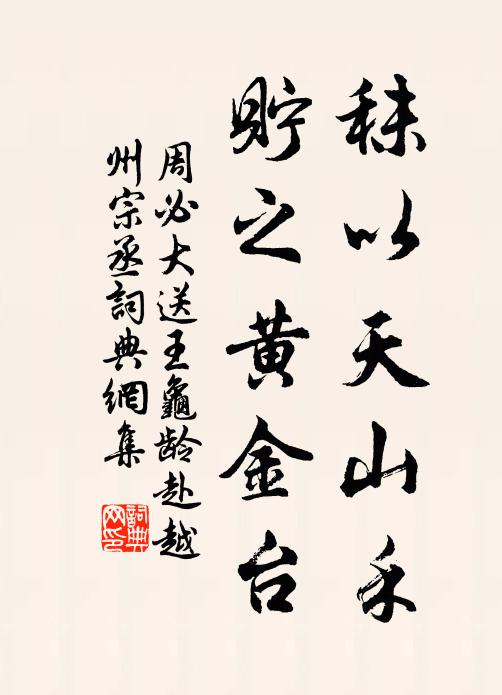 秣以天山禾
貯之黄金台
周必大送王龜龄赴越
州宗丞詞典網集
詞典网印